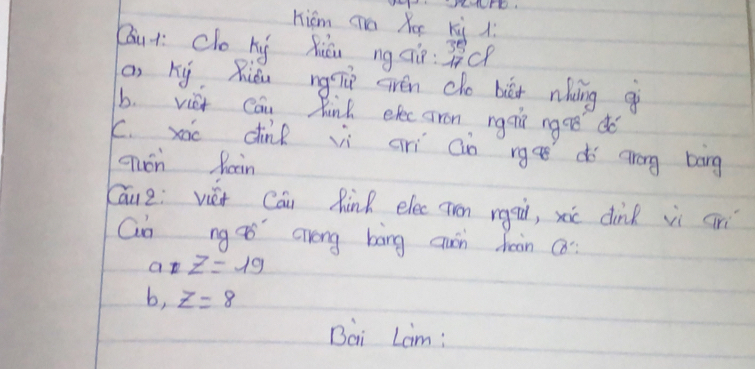 Kiểm tra học kỳ 1:
Câu 1: Cho ký hiệu ng tử: ³⁵₁₇Cl
a, Ký hiệu ng tử trên cho biết những gì
b. viết cấu hình elec tron ngtử ngtố đó
c. xác định vị trí của ngtố đó trong bảng
tuần hoàn
Câu 2: viết cấu hình elec tron ngtử, xác định vị trí
Của ng tố trong bảng tuần hoàn có:
a, Z = 19
b, Z = 8
Bài Làm: